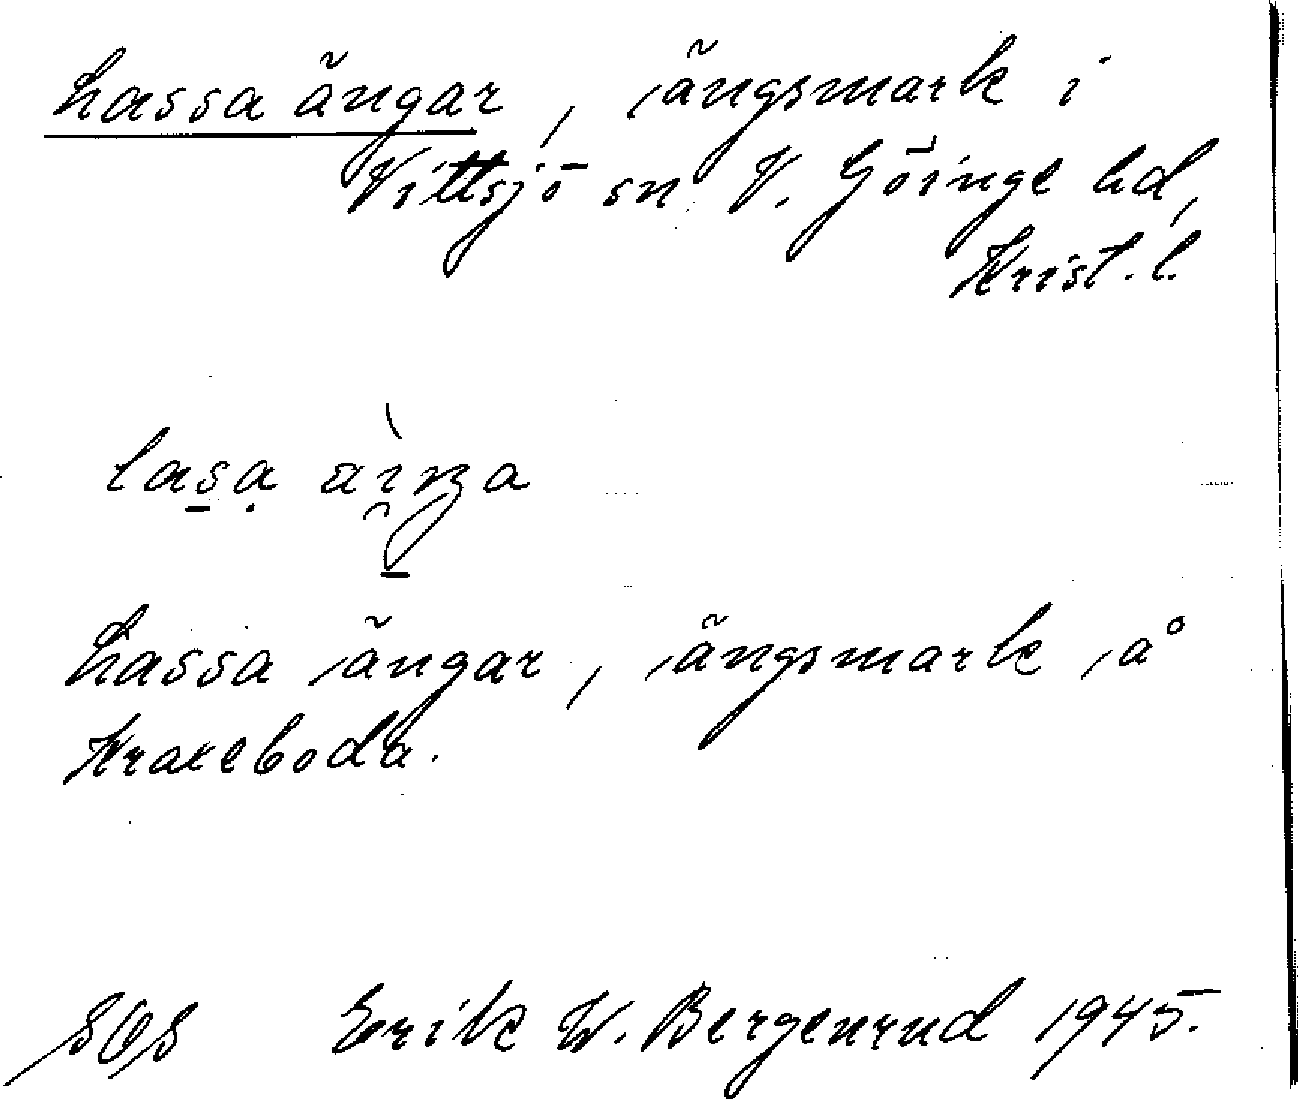 Lassa ängar, ängsmark i
Vittsjö sn V. Göinge hd,
Krist. l.
Lassa ängar, ängsmark å
Krakeboda.
SOS Erik W. Bergenrud 1945.